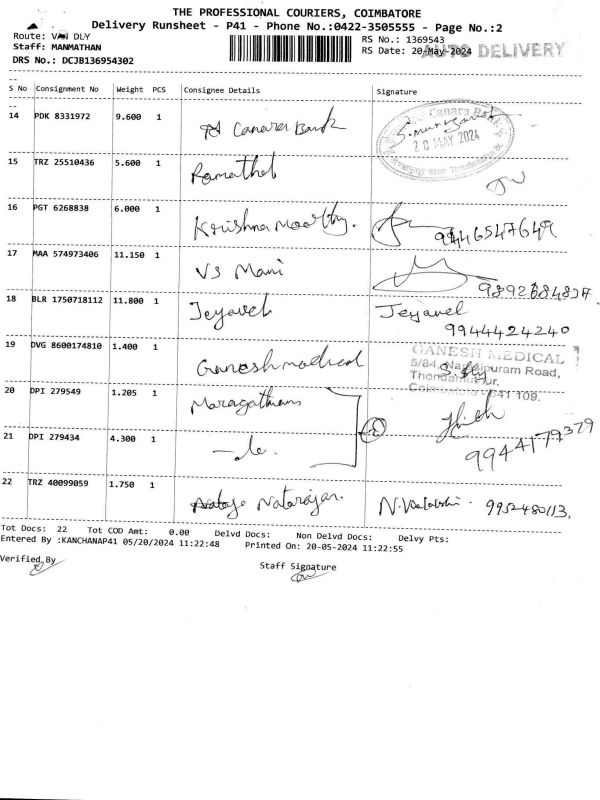 THE PROFESSIONAL COURIERS, COIMBATORE
Delivery Runsheet - P41 - Phone No.:0422-3505555 - Page No.:2
Route: VAN DLY
RS No.: 1369543
Staff: MANMATHAN
RS Date: 20-May-2024 AUTO DELIVERY
DRS No.: DCJB136954302
S No Consignment No Weight PCS Consignee Details Signature
14 PDK 8331972 9.600 1 Canara Bank Canara Bank
20 MAY 2024
15 TRZ 25510436 5.600 1 Ramathal
16 PGT 6268838 6.000 1 Krishna Moorthy. 9446547649.
17 MAA 574973406 11.150 1 VS Mani 9892684827
18 BLR 1750718112 11.800 1 Jeyavel Jeyavel
9944424240
19 DVG 8600174810 1.400 1 Ganesh medical GANESH MEDICAL
5/84, Narasipuram Road,
Thondamuthur,
Coimbatore - 641 109.
20 DPI 279549 1.205 1 Maragatham
21 DPI 279434 4.300 1 9944179379
22 TRZ 40099059 1.750 1 Natarajan. 9952480113,
Tot Docs: 22 Tot COD Amt: 0.00 Delvd Docs: Non Delvd Docs: Delvy Pts:
Entered By :KANCHANAP41 05/20/2024 11:22:48 Printed On: 20-05-2024 11:22:55
Verified By Staff Signature